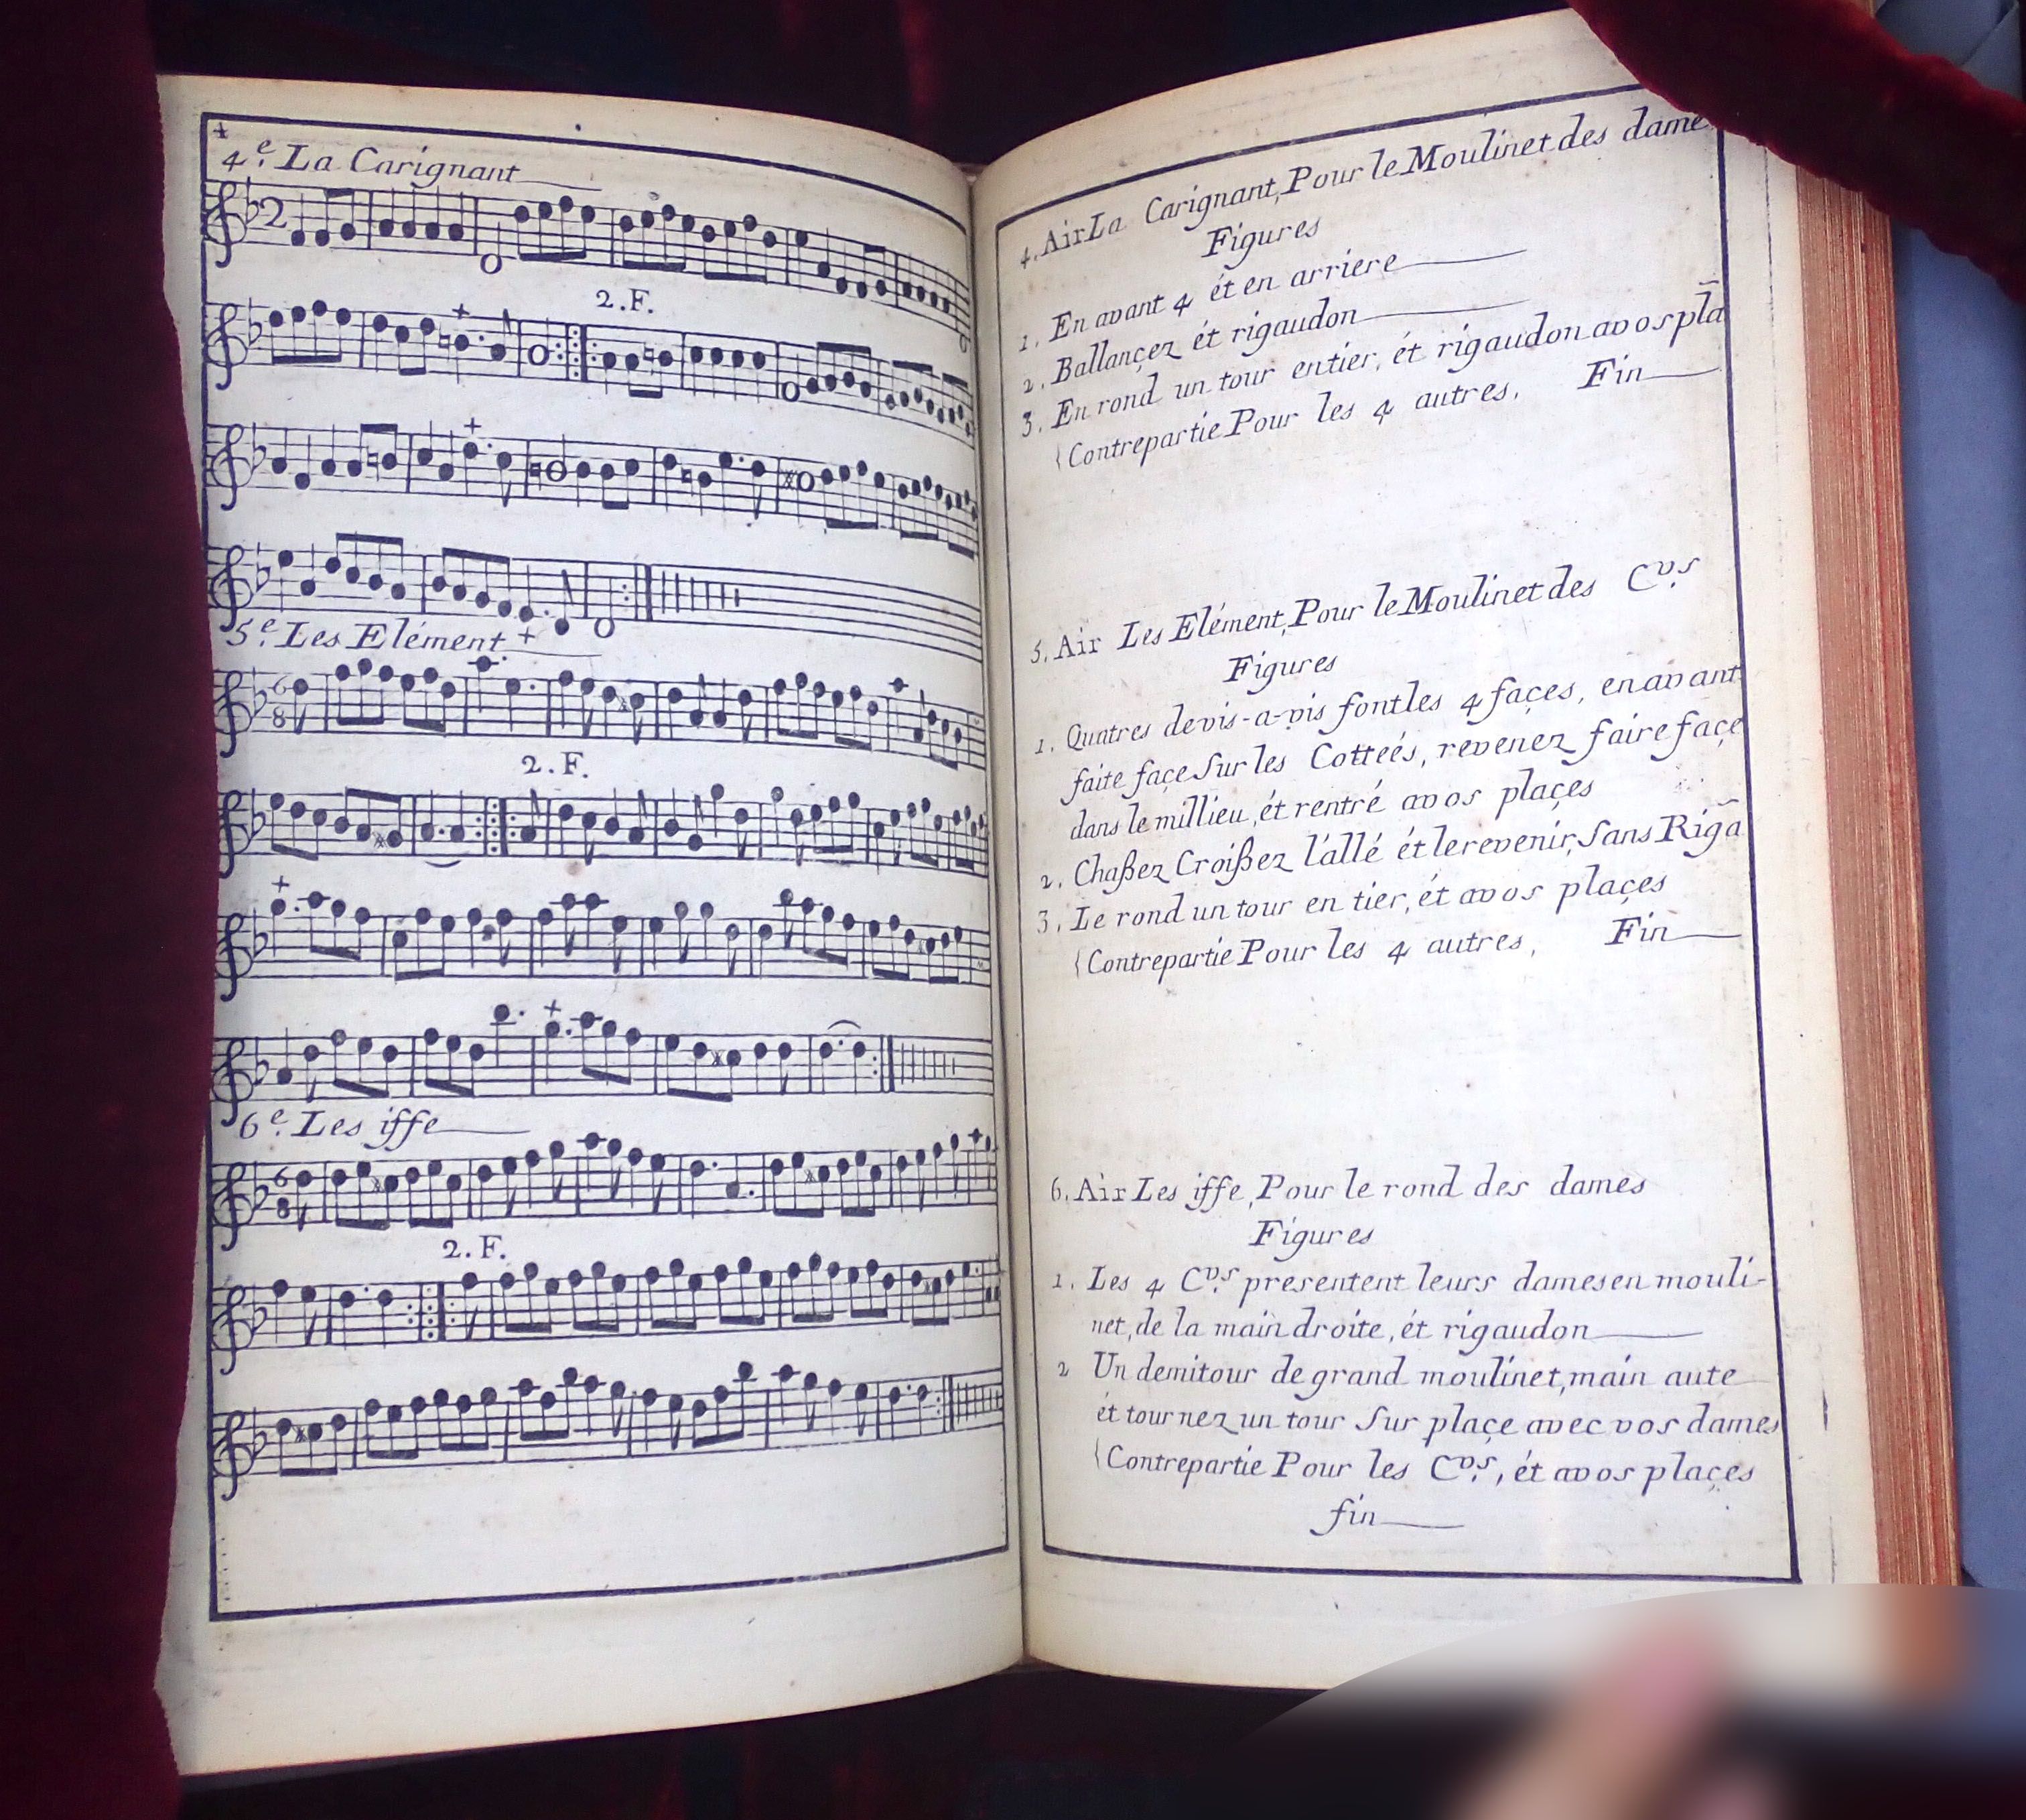 4
4.e La Carignant
2
2.F.
5.e Les Elément
6
8
2.F.
6.e Les iffe
6
8
2.F.
4. Air La Carignant, Pour le Moulinet des dame
Figures
1. En avant 4 ét en arriere
2. Ballançez ét rigaudon
3. En rond un tour entier, ét rigaudon avos pla
{Contrepartie Pour les 4 autres, Fin
5. Air Les Elément, Pour le Moulinet des C.vs
Figures
1. Quatres devis-a-vis font les 4 façes, enavant
faite façe Sur les Cotteés, revenez faire façe
dans le millieu, ét rentré avos plaçes
2. Chaßez Croißez l'allé ét le revenir, Sans Riga
3. Le rond un tour en tier, ét avos plaçes
{Contrepartie Pour les 4 autres, Fin
6. Air Les iffe, Pour le rond des dames
Figures
1. Les 4 C.vs presentent leurs dames en mouli-
net, de la main droite, ét rigaudon
2 Un demitour de grand moulinet, main aute
ét tournez un tour Sur plaçe avec vos dames
{Contrepartie Pour les C.vs, ét avos plaçes
fin